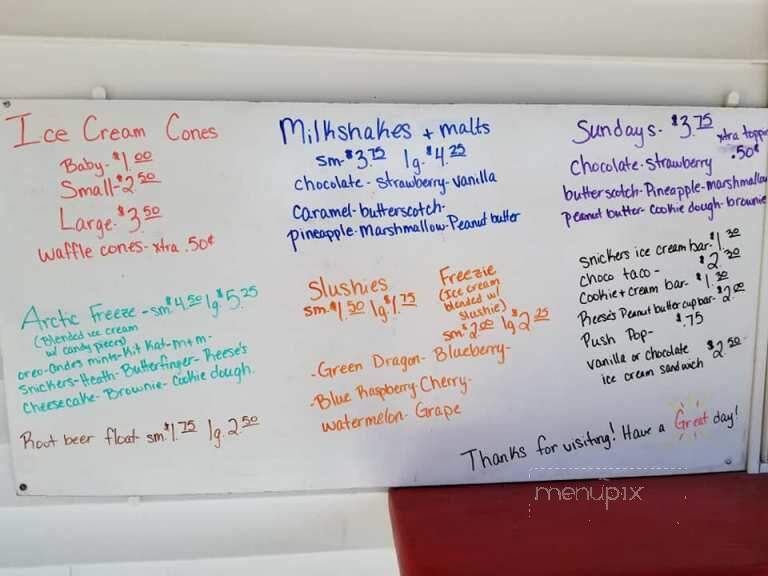 Ice Cream Cones
Baby-$1.00
Small-$2.50
Large-$3.50
Waffle cones-xtra .50¢
Arctic Freeze-sm$4.50 lg$5.25
(Blended ice cream
w/ candy pieces)
oreo-andes mints-Kit Kat-m+m-
Snickers-Heath-Butterfinger-Reese's
Cheesecake-Brownie-Cookie dough.
Root beer float-sm.$1.75 lg.2.50
Milkshakes + malts
sm-$3.75 lg-$4.25
chocolate-strawberry-vanilla
Caramel-butterscotch-
pineapple-Marshmallow-Peanut butter
Slushies
sm-$1.50 lg$1.75
Freezie
(Ice cream
blended w/
slushie)
sm$2.00 lg$2.25
-Green Dragon-Blueberry-
-Blue Raspberry-Cherry-
Watermelon-Grape
Sundays-$3.75
xtra topping
.50¢
Chocolate-Strawberry
butterscotch-Pineapple-marshmallow
peanut butter-Cookie dough-brownie
snickers ice cream bar-$1.30
choco taco-$2.30
cookie+cream bar-$1.30
Reese's Peanut butter cup bar-$2.00
Push Pop-$.75
vanilla or chocolate
ice cream sandwich $2.50
Thanks for visiting! Have a Great day!
menupix